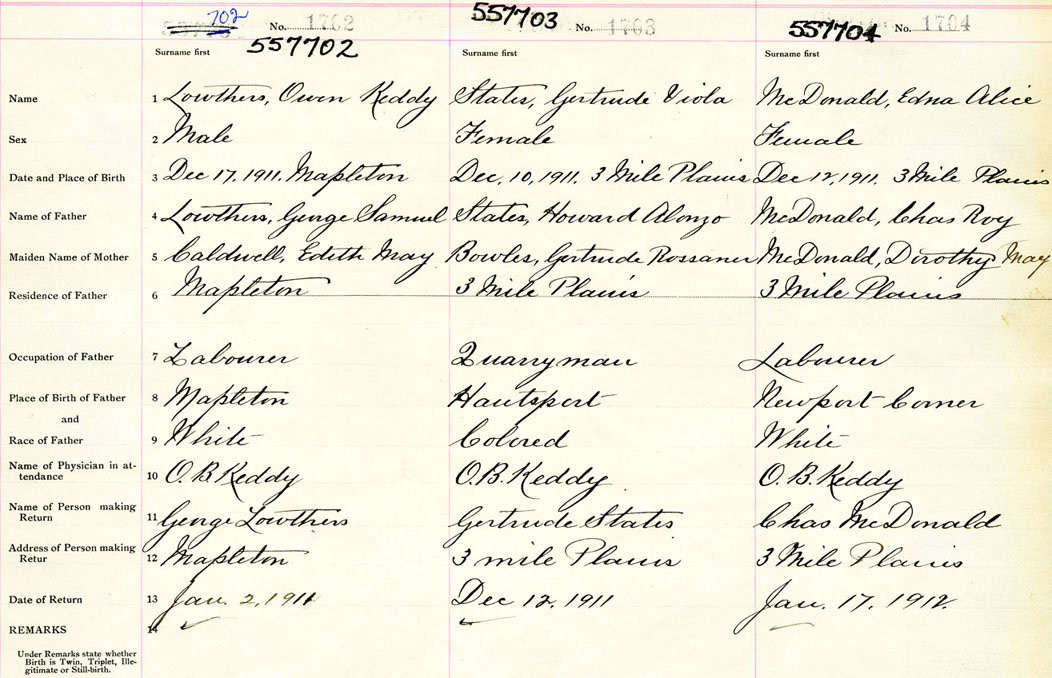 702 No. 1702 557703 No. 1703 557704 No. 1704
Surname first 557702 Surname first Surname first
Name 1 Lowthers, Owen Keddy States, Gertrude Viola McDonald, Edna Alice
Sex 2 Male Female Female
Date and Place of Birth 3 Dec 17, 1911. Mapleton Dec, 10, 1911. 3 Mile Plains Dec 12, 1911. 3 Mile Plains
Name of Father 4 Lowthers, George Samuel States, Howard Alonzo McDonald, Chas Roy
Maiden Name of Mother 5 Caldwell, Edith May Bowles, Gertrude Rossaner McDonald, Dorothy May
Residence of Father 6 Mapleton 3 Mile Plains 3 Mile Plains
Occupation of Father 7 Labourer Quarryman Labourer
Place of Birth of Father 8 Mapleton Hantsport Newport Corner
and
Race of Father 9 White Colored White
Name of Physician in at-
tendance 10 O. B. Keddy O. B. Keddy O. B. Keddy
Name of Person making
Return 11 George Lowthers Gertrude States Chas McDonald
Address of Person making
Retur 12 Mapleton 3 mile Plains 3 Mile Plains
Date of Return 13 Jan. 2, 1911 Dec 12, 1911 Jan. 17, 1912.
REMARKS 14
Under Remarks state whether
Birth is Twin, Triplet, Ille-
gitimate or Still-birth.